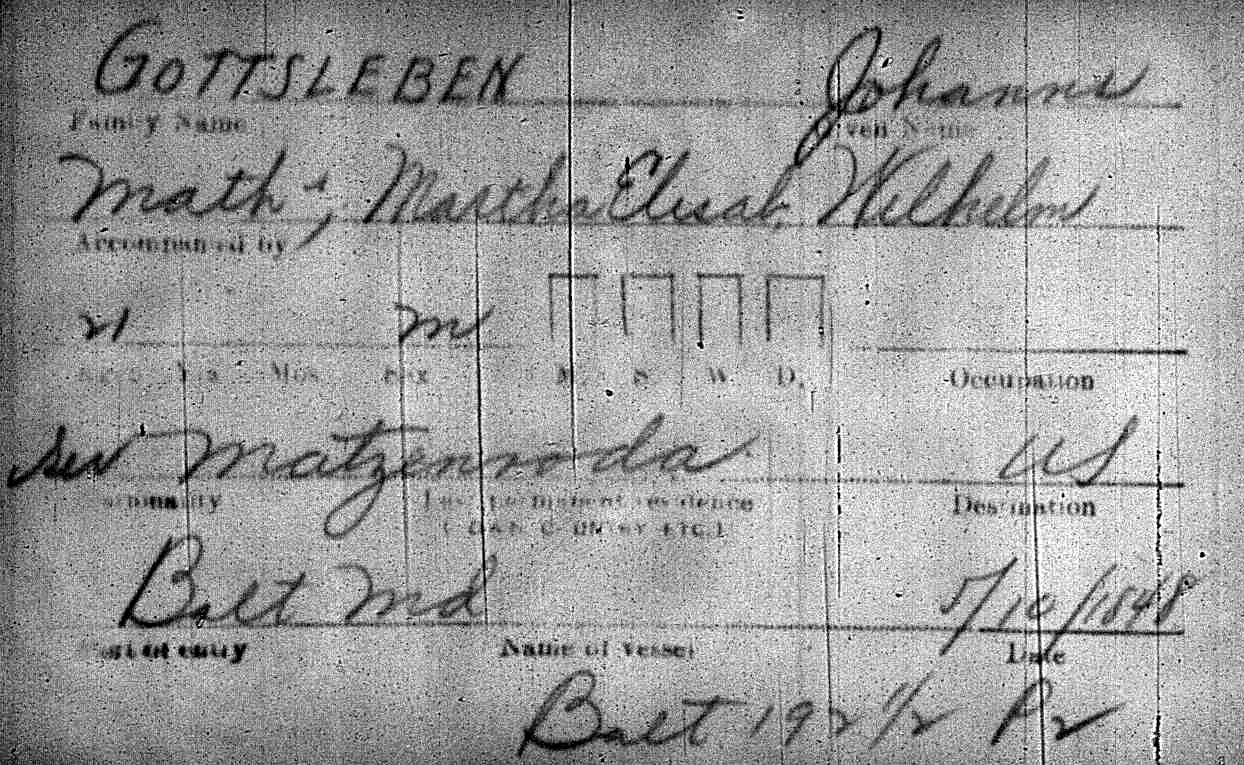 GOTTSLEBEN Johanne
Family Name Given Name
Math; Martha Elisab, Wilhelm
Accompanied by
21 M
Age Yrs. Mos. Sex M. S. W. D. Occupation
Matzenroda US
Nationality Last permanent residence Destination
Balt Md 5/10/1848
Port of entry Name of vessel Date
Balt 192 1/2 P2